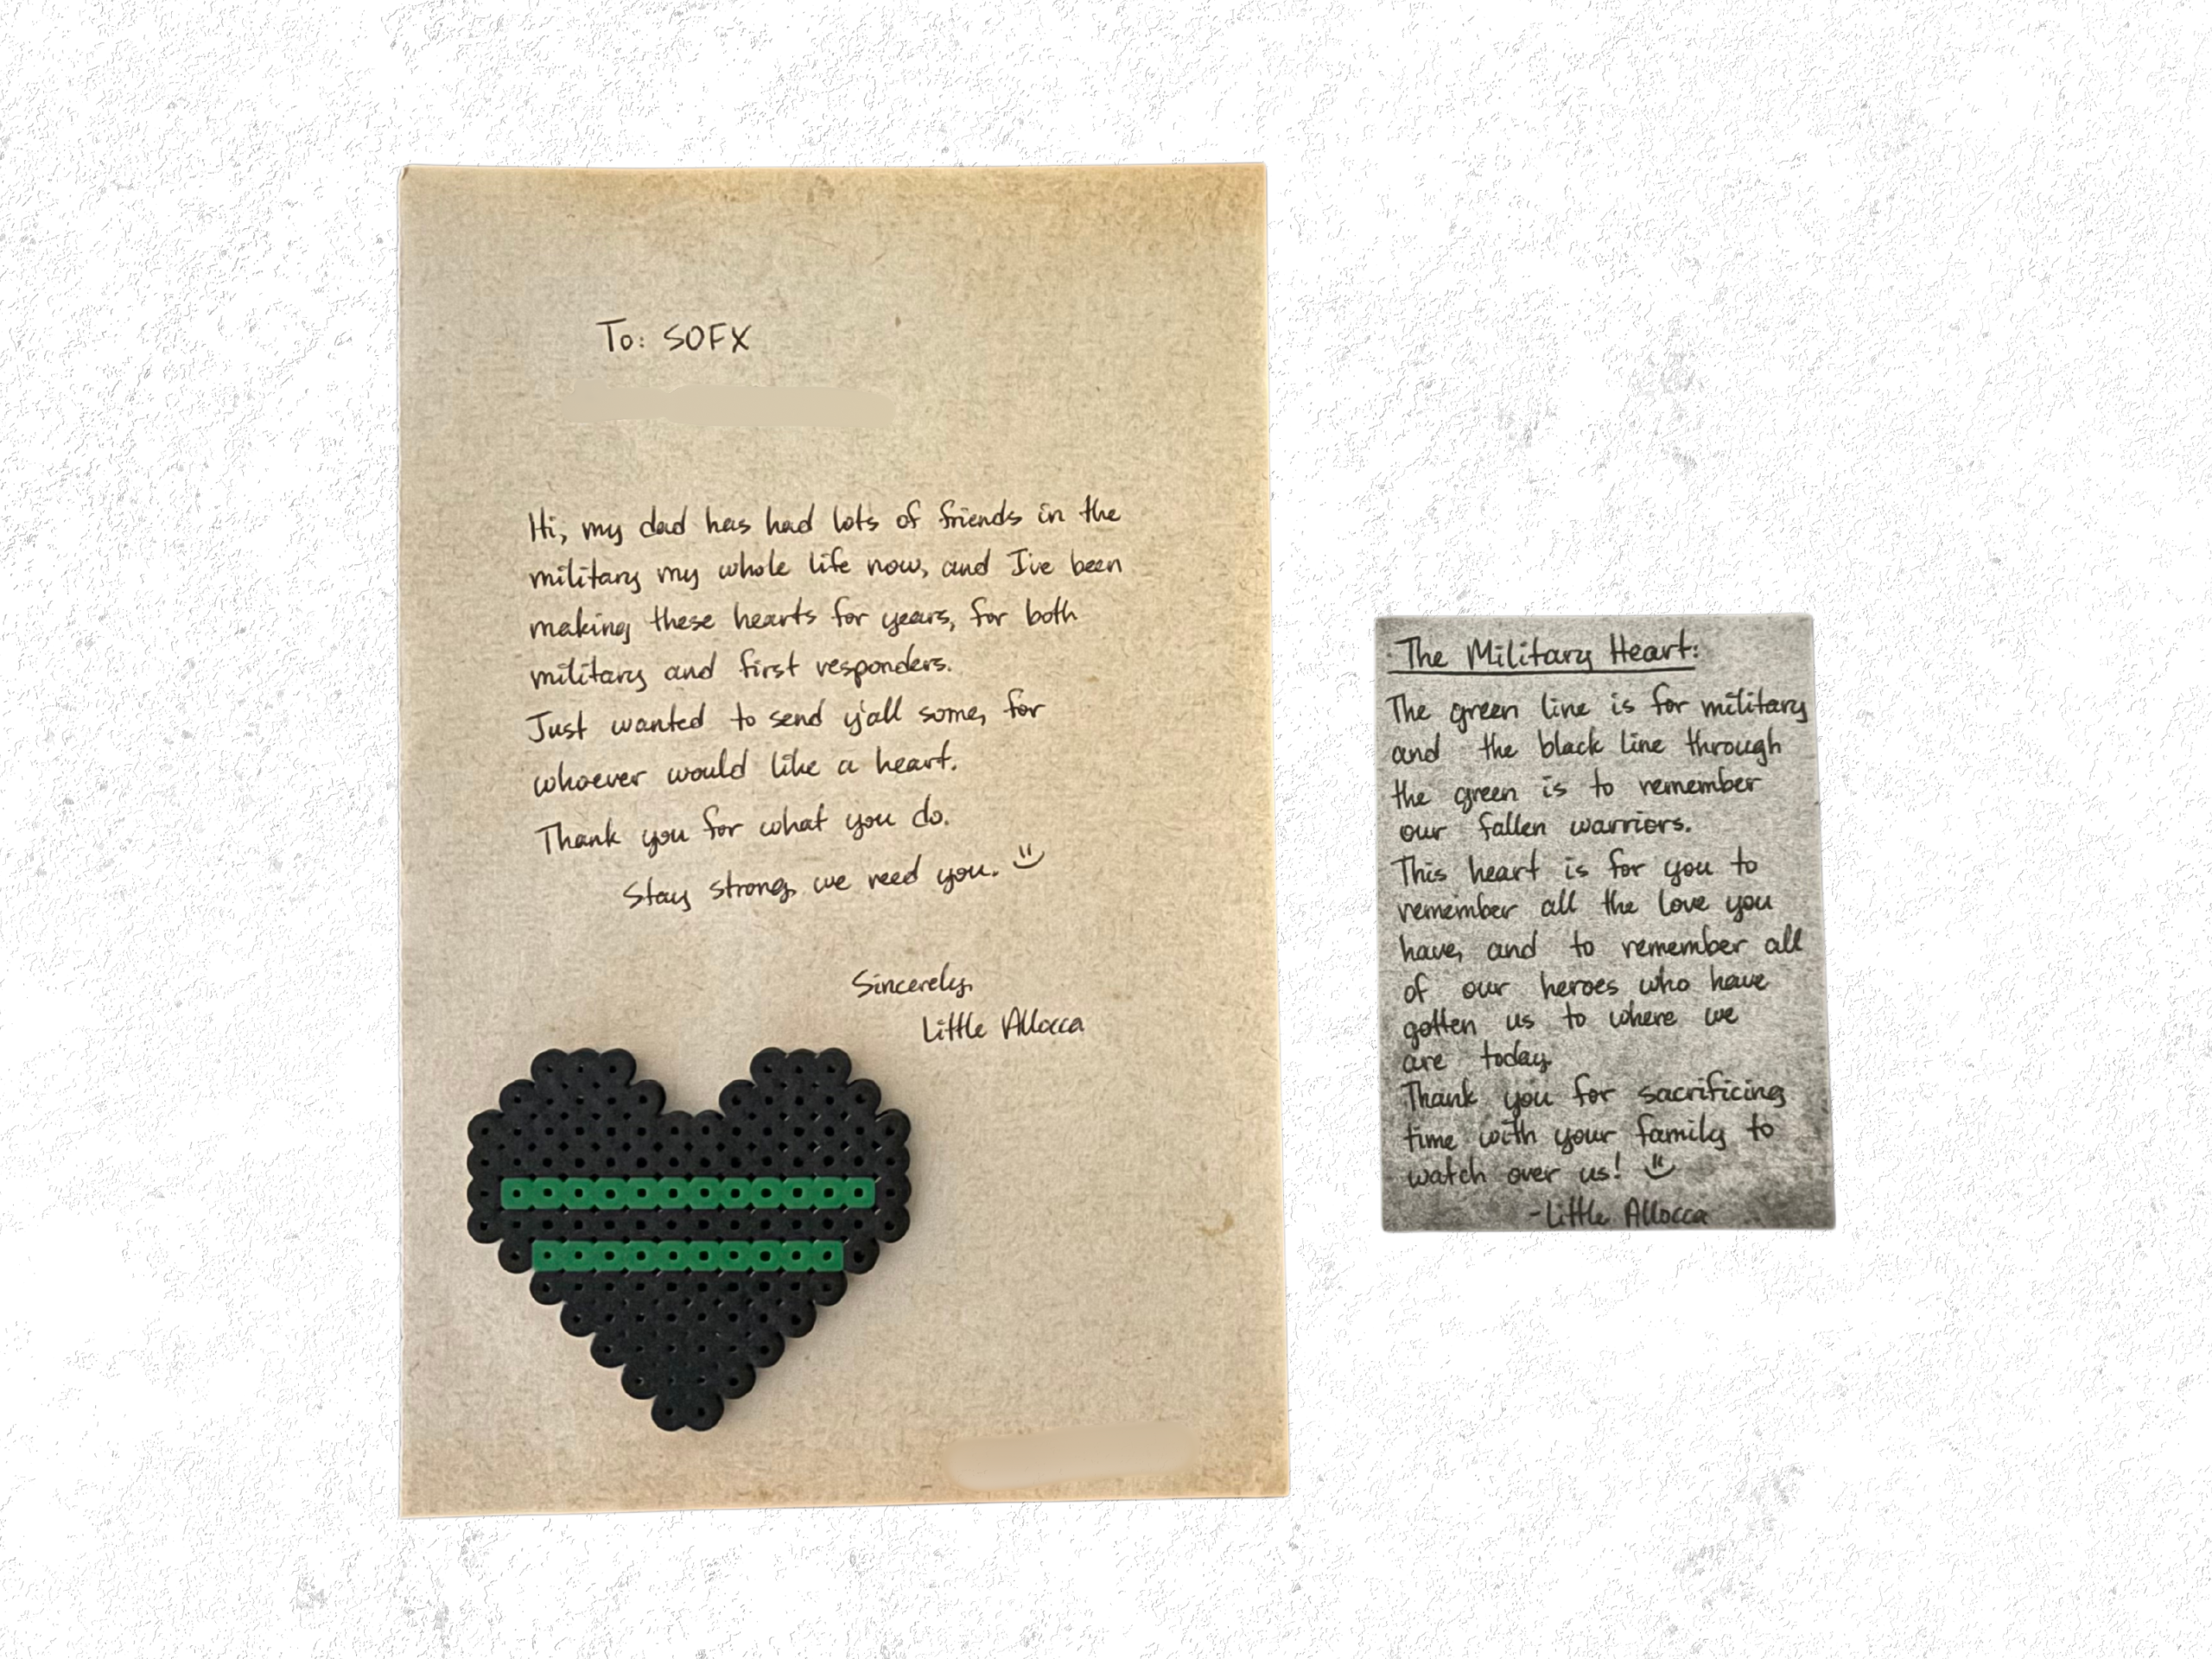 To: SOFX
Hi, my dad has had lots of friends in the
military my whole life now, and I've been
making these hearts for years, for both
military and first responders.
Just wanted to send y'all some, for
whoever would like a heart.
Thank you for what you do.
Stay strong, we need you.
Sincerely,
Little Allocca
The Military Heart:
The green line is for military
and the black line through
the green is to remember
our fallen warriors.
This heart is for you to
remember all the love you
have, and to remember all
of our heroes who have
gotten us to where we
are today.
Thank you for sacrificing
time with your family to
watch over us!
-Little Allocca